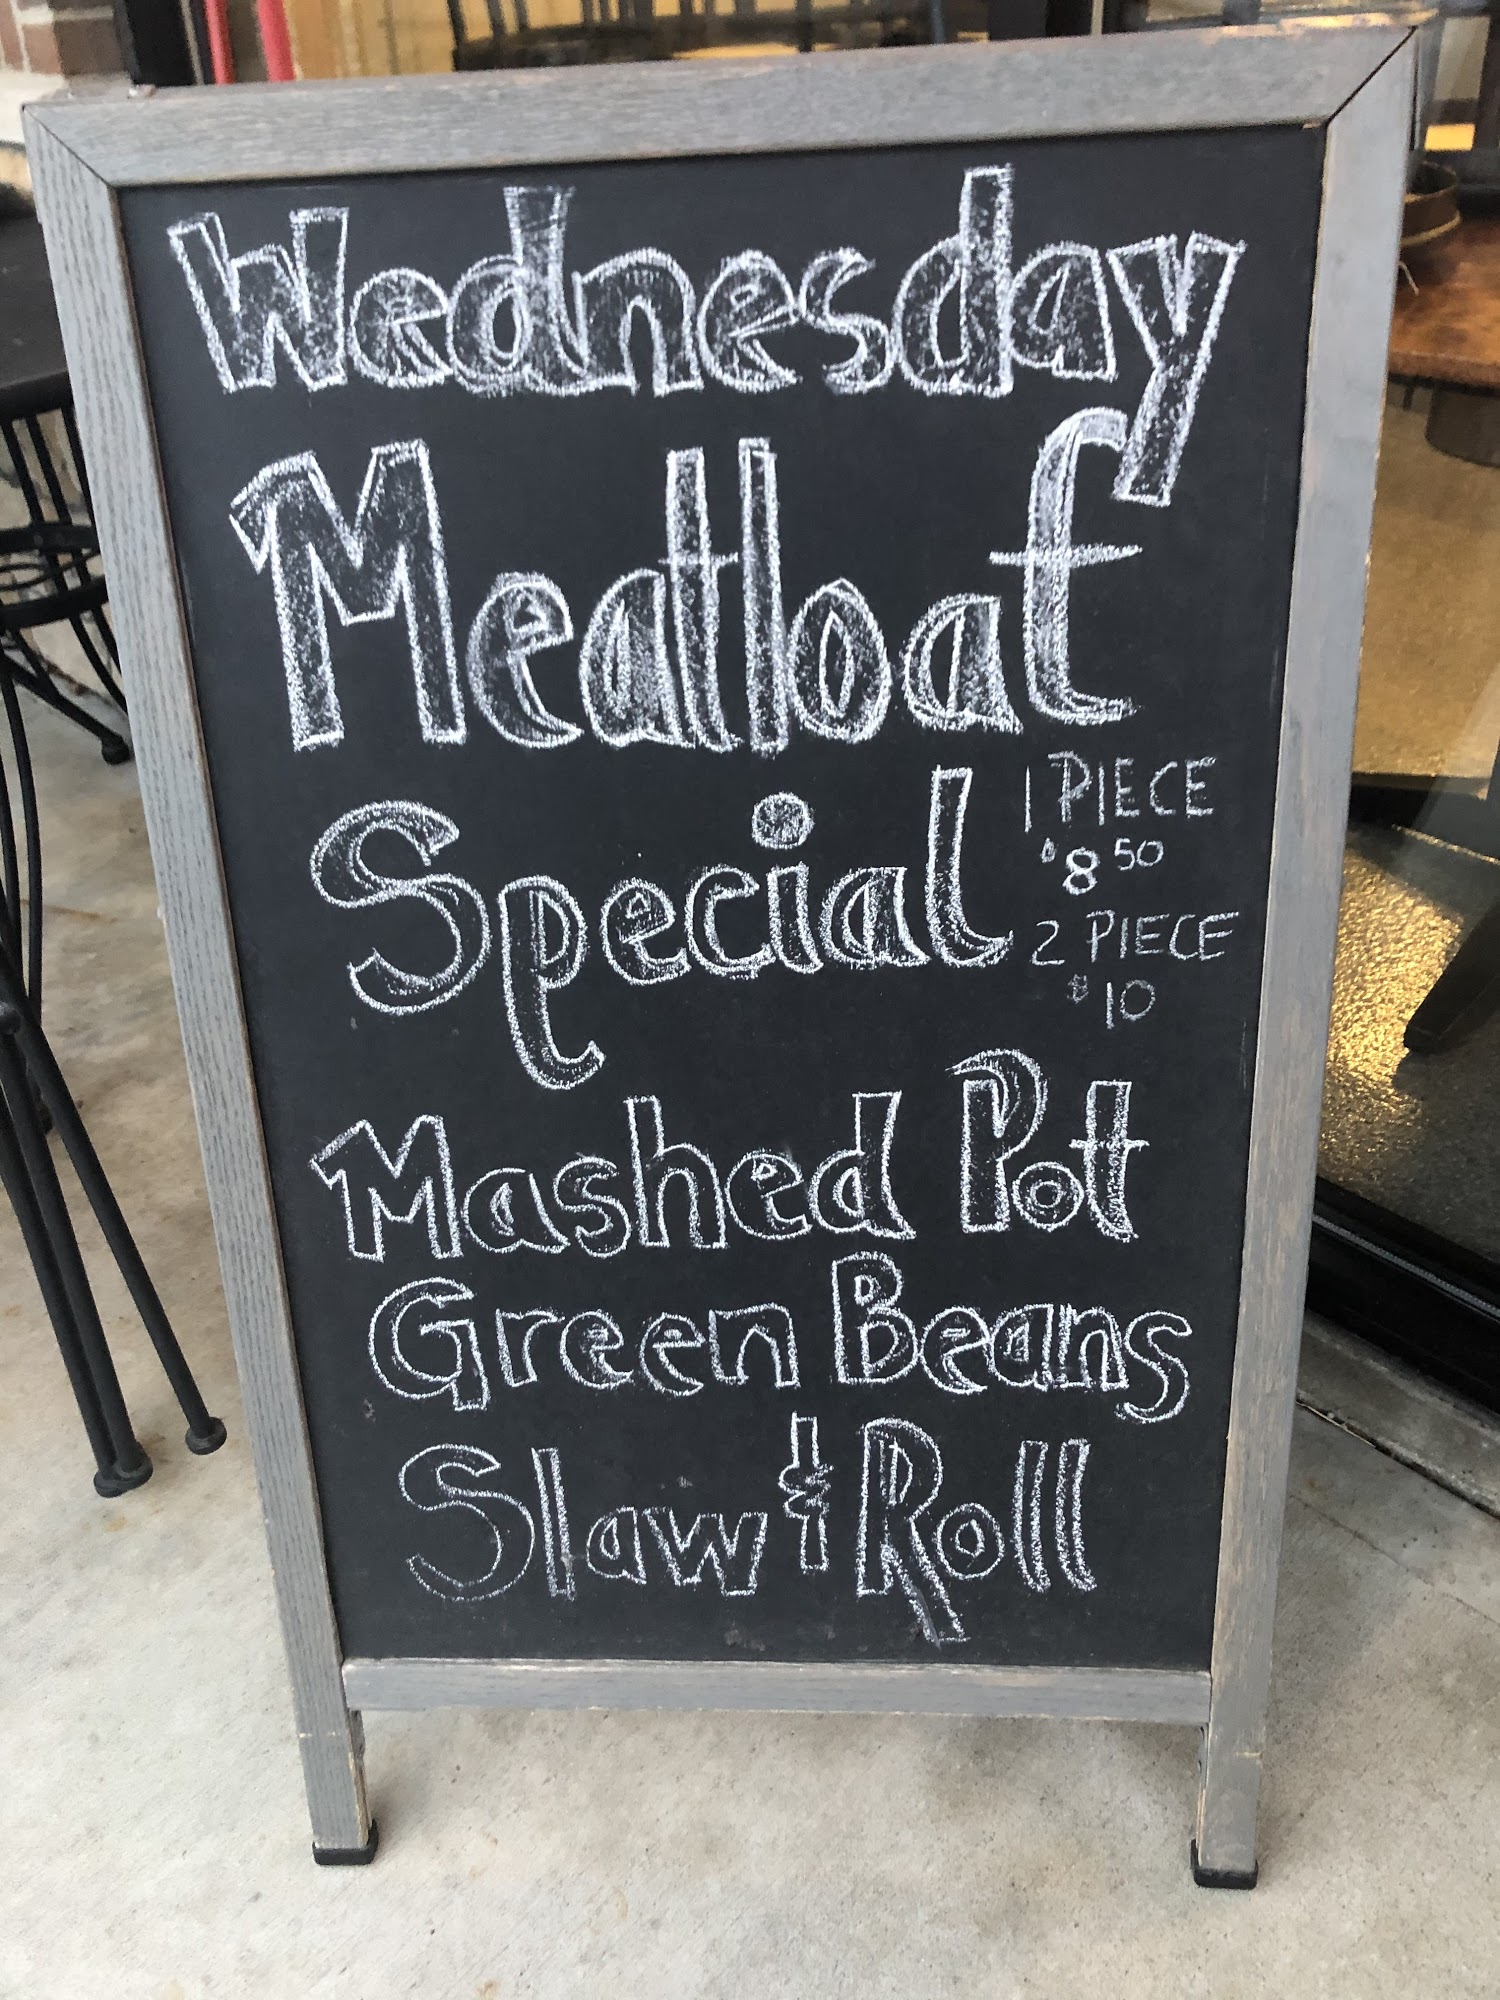 Wednesday
Meatloaf
Special
1 PIECE
$8.50
2 PIECE
$10
Mashed Pot
Green Beans
Slaw & Roll